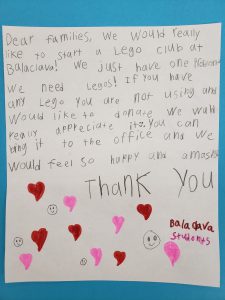 Dear families, We would Really
like to start a Lego club at
Balaclava! We Just have one Problem
We need Legos! If you have
any Lego you are not using and
Would like to donate We would
really appreciate it. You can
bring it to the office and we
would feel so happy and
Thank You
Balaclava
Students